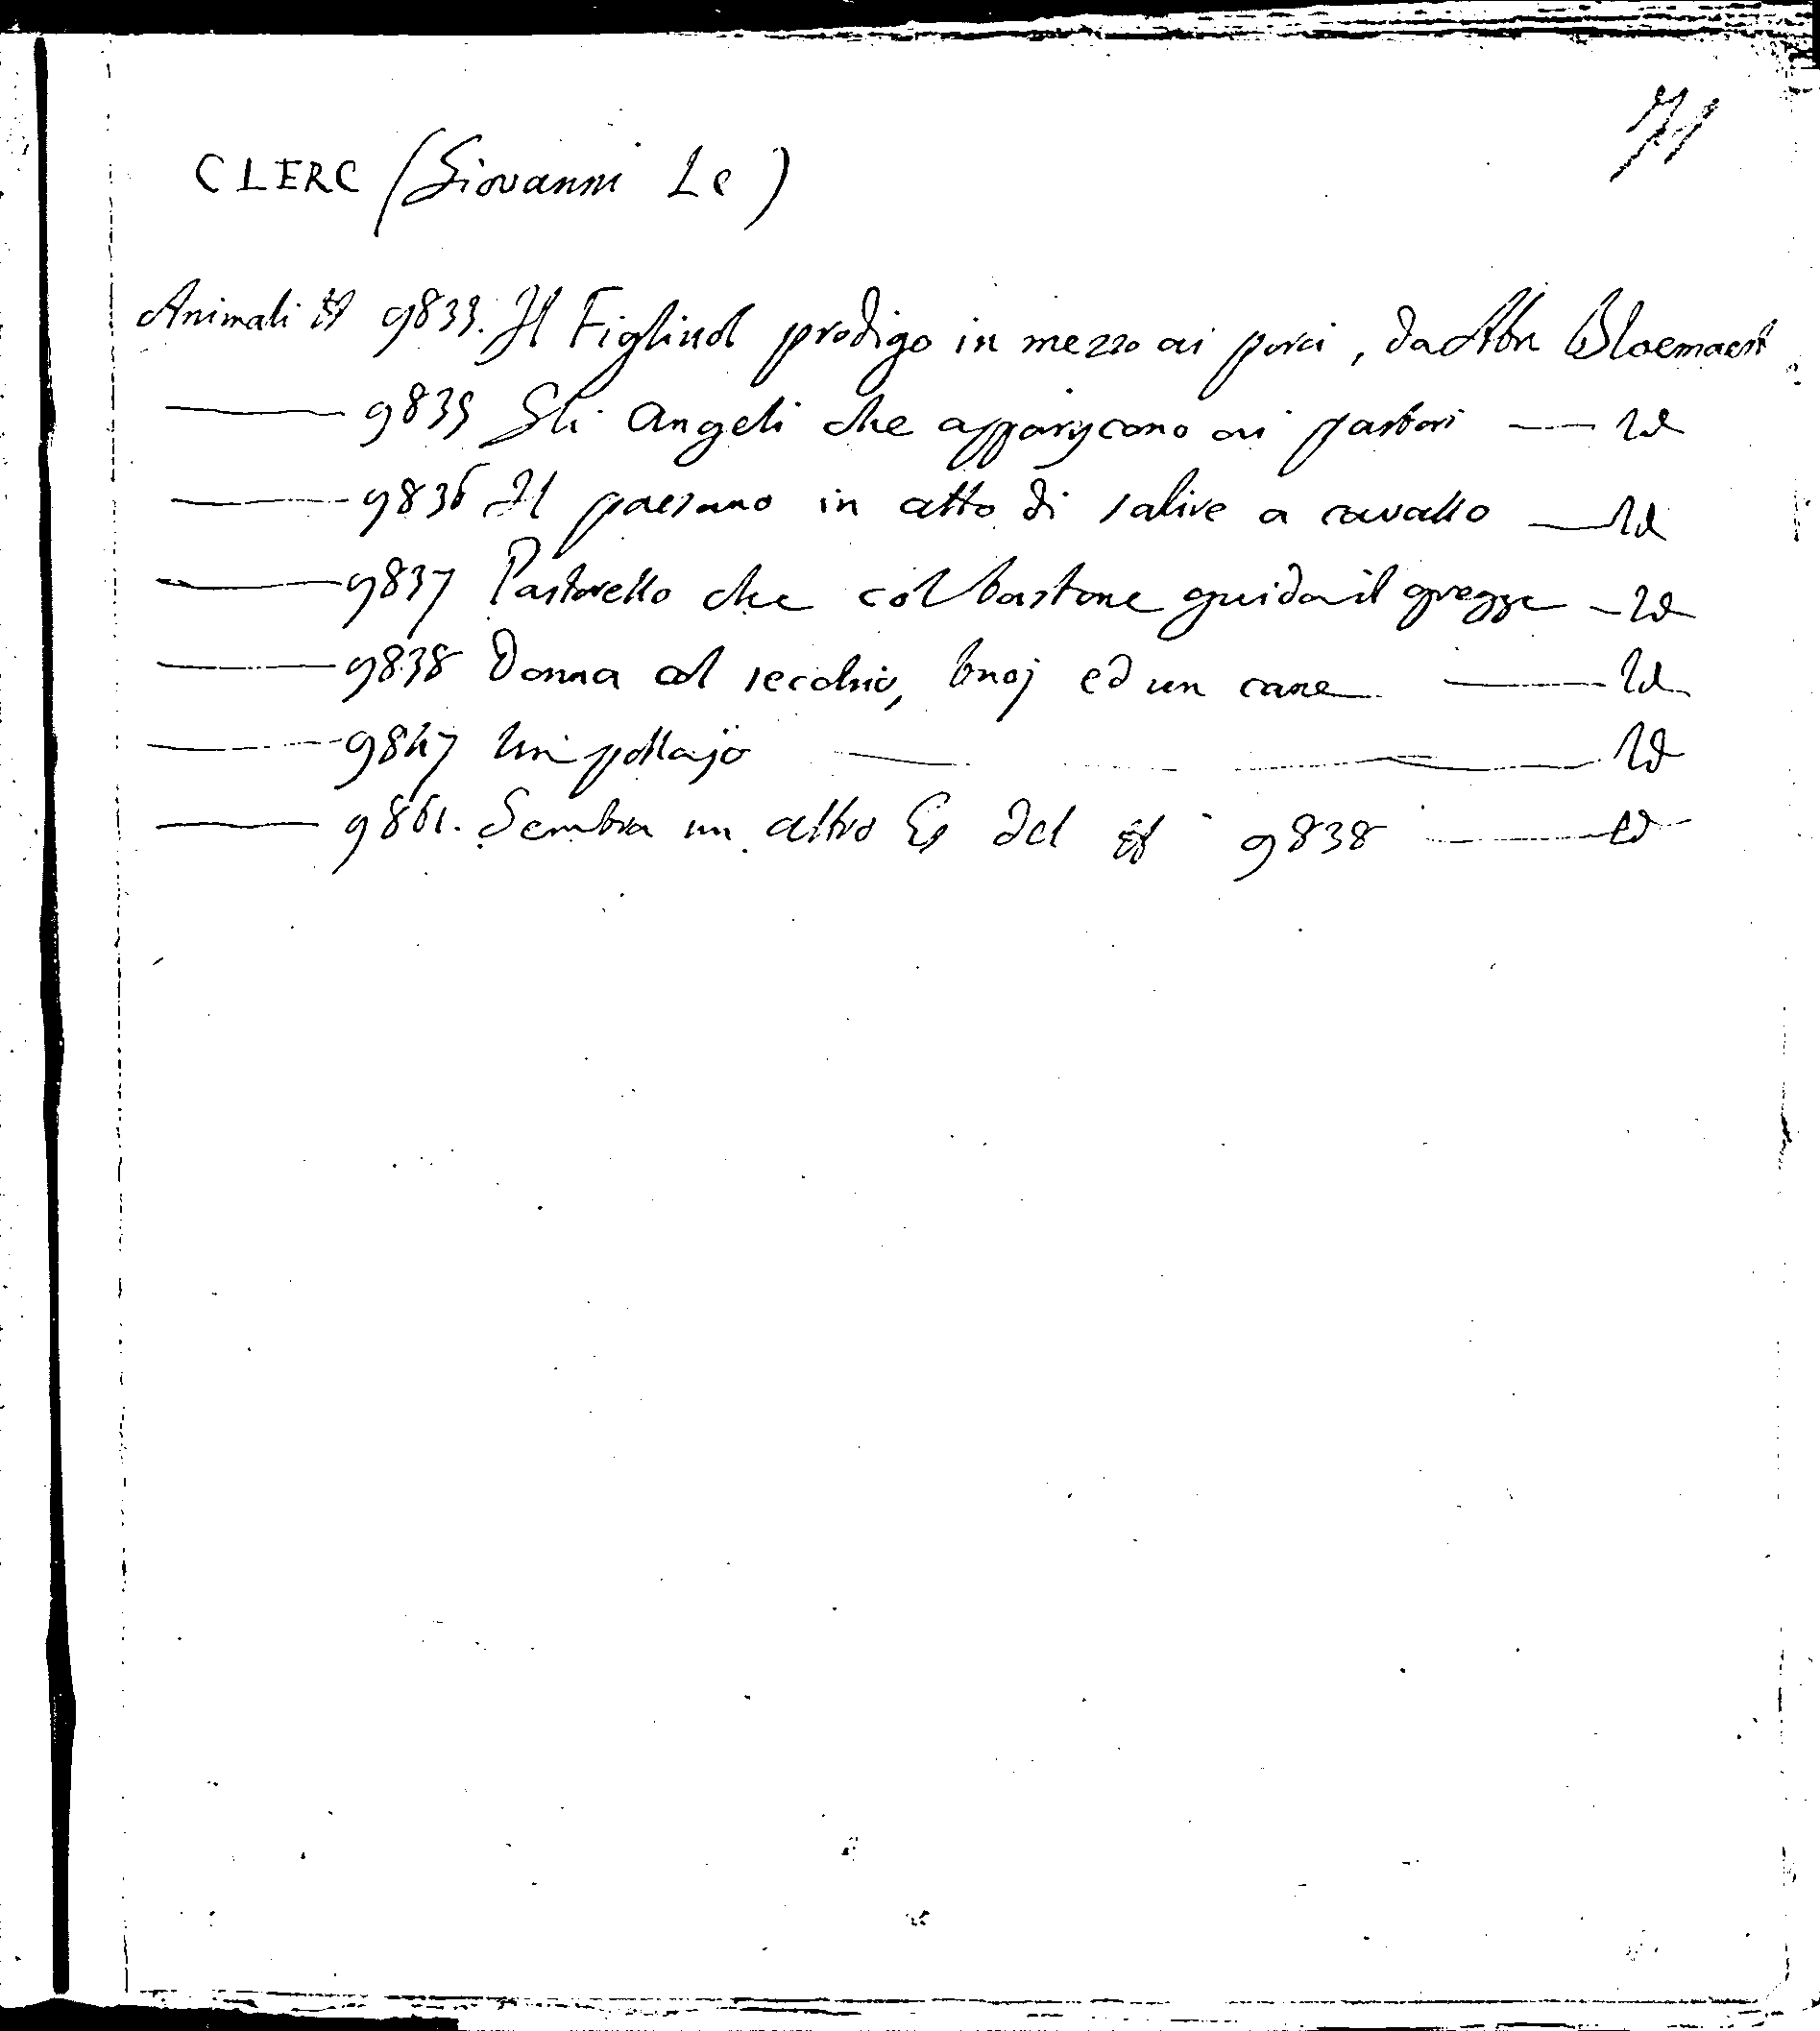 71
CLERC (Giovanni Le)
Animali N 9833. Il Figliuol prodigo in mezzo ai porci, da Abr Bloemaert
9835 Gli Angeli che appariscono ai pastori — Id
9836 Il paesano in atto di salire a cavallo — Id
9837 Pastorello che col bastone guida il gregge — Id
9838 Donna col secchio, buoj ed un cane — Id
9847 Un pollajo — Id
9861. Sembra un altro Es del N 9838 — Id